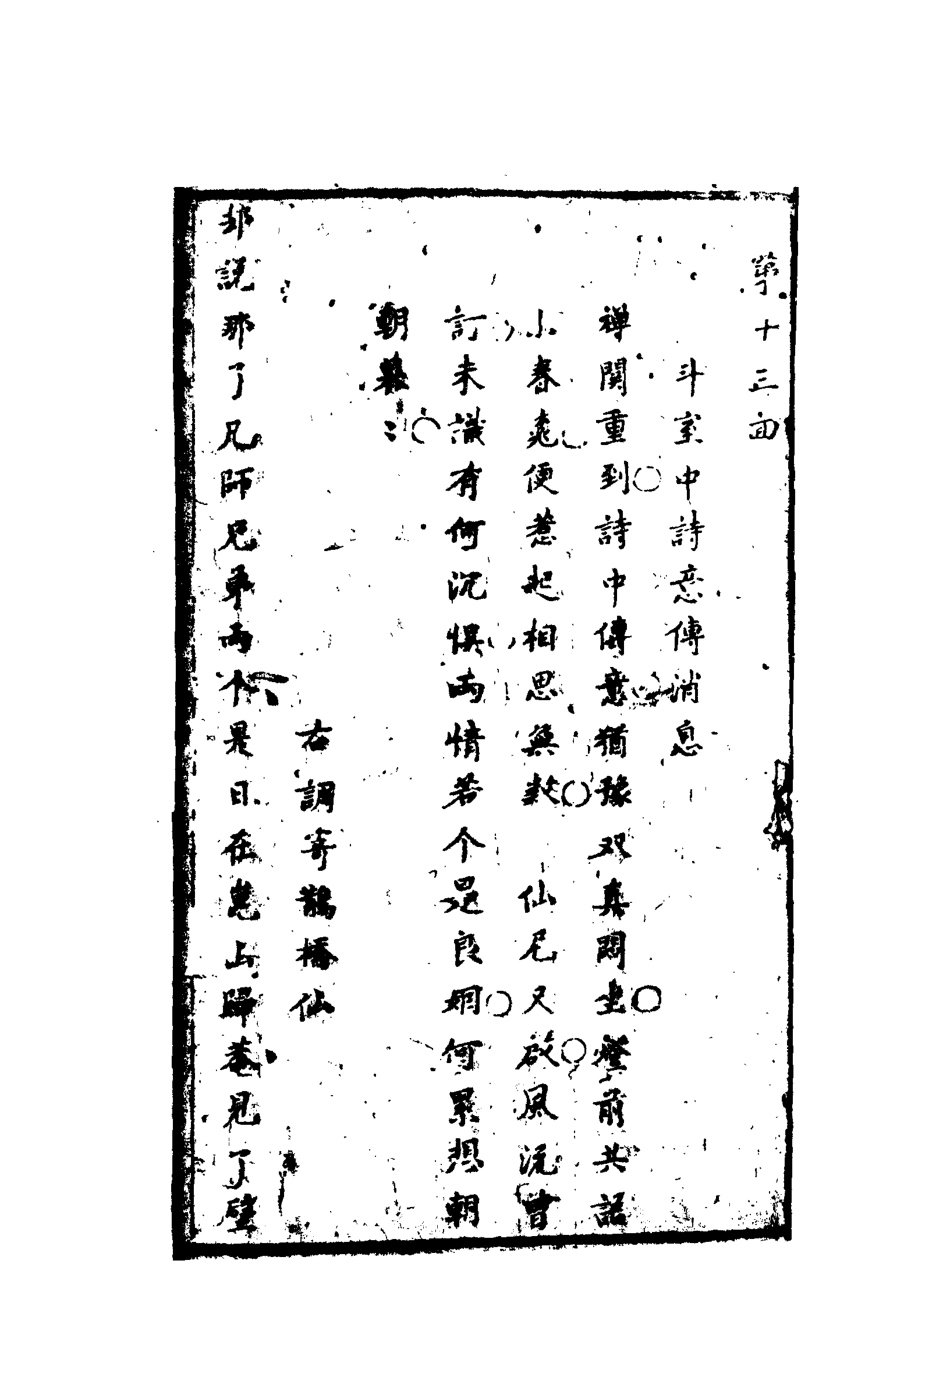 第十三回
斗室中詩意傳消息
禅関重到詩中傳意猶豫双真悶坐燈前共語
小春乖便惹起相思無数　仙尼又啟風流曾
訂未識有何沉悞両情若个是良姻何累想朝
朝暮〻
右調寄鵲橋仙
却説那了凡師兄弟両个是日在嵬山歸菴見了壁